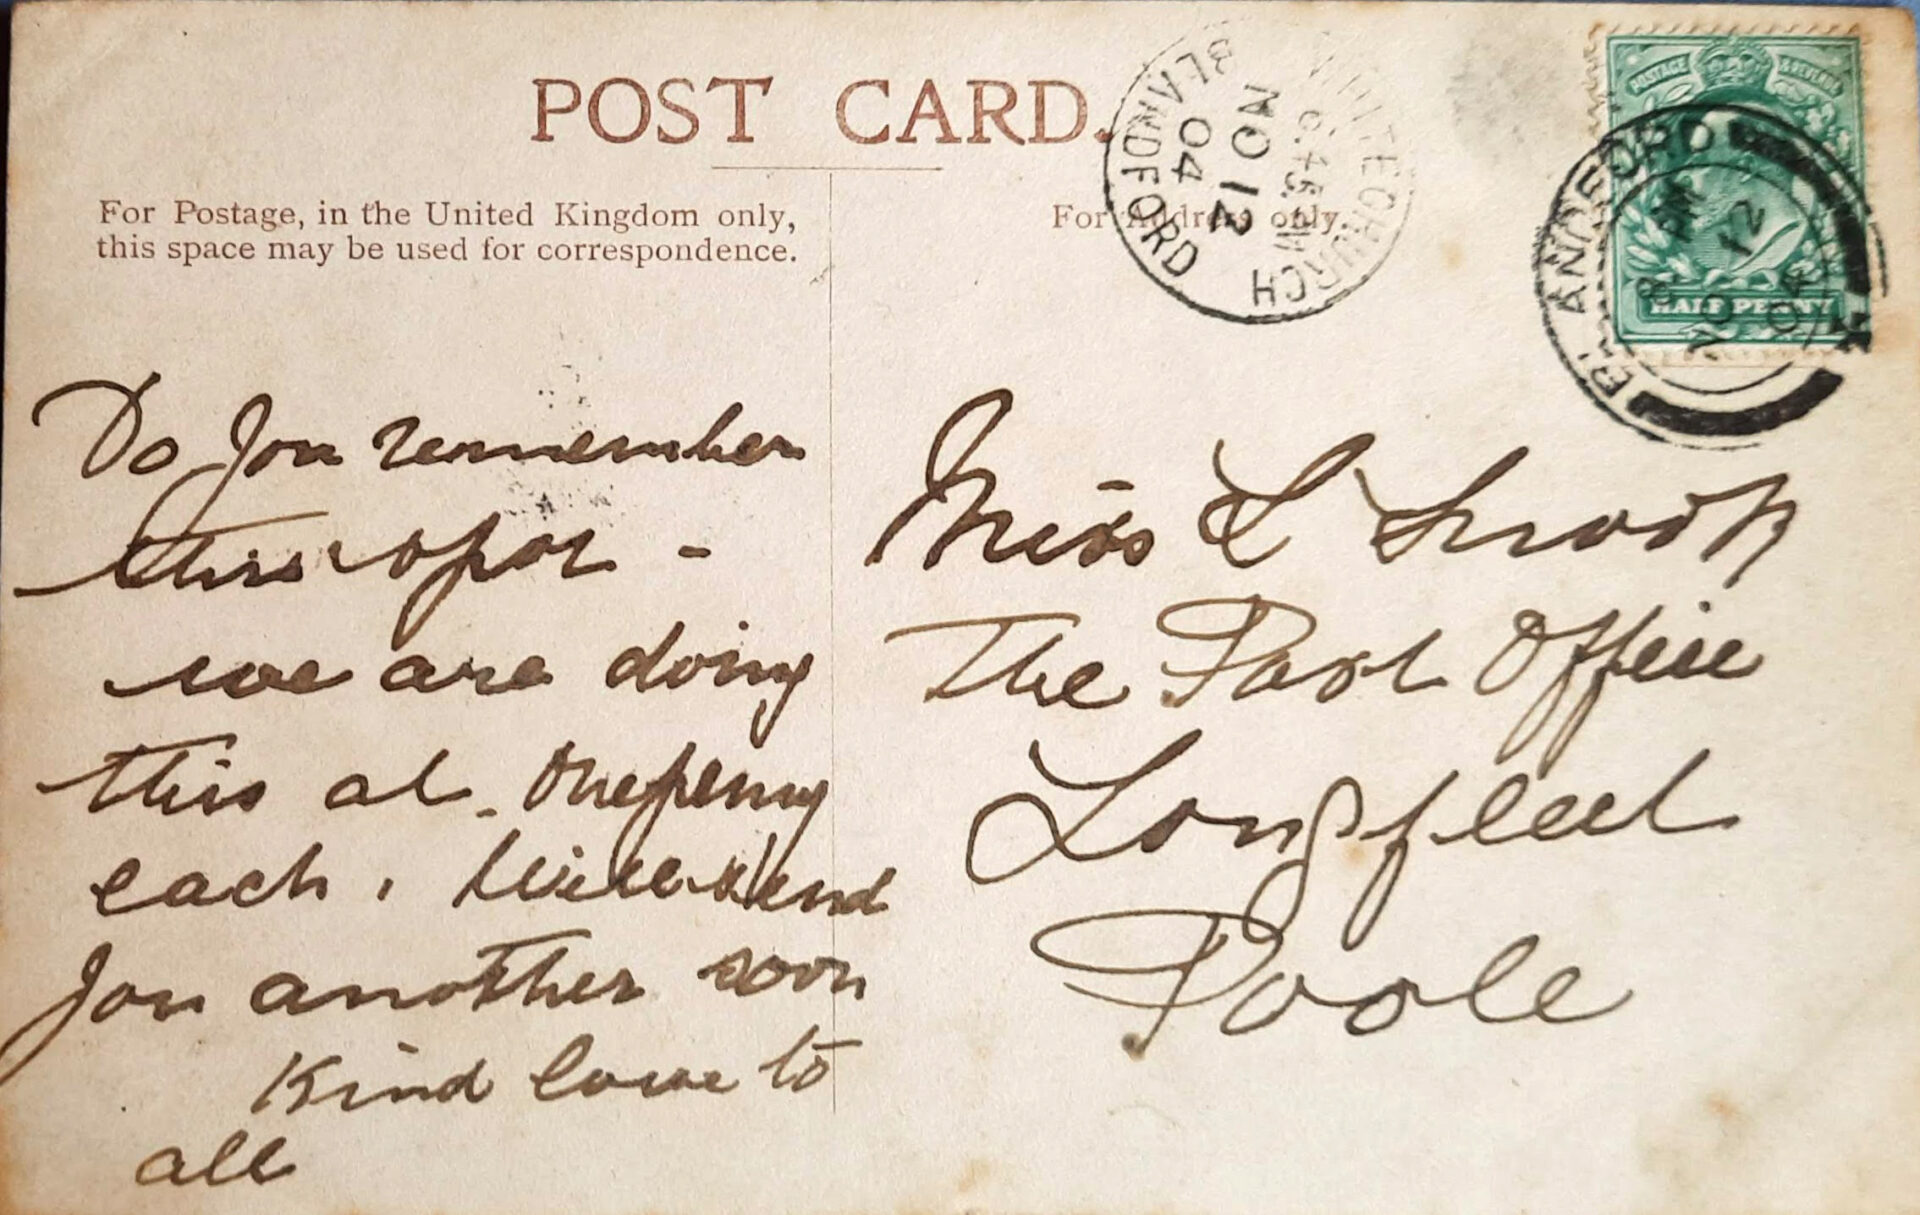 POST CARD.
For Postage, in the United Kingdom only,
this space may be used for correspondence.
For Address only.
WHITECHURCH
6.45 PM
NO 12
04
BLANDFORD
POSTAGE & REVENUE
HALF PENNY
BLANDFORD
PM
NO 12
04
Do you remember
this spot -
we are doing
this at. onepenny
each. Will send
you another soon
Kind love to
all
Miss L
The Post Office
Longfleet
Poole